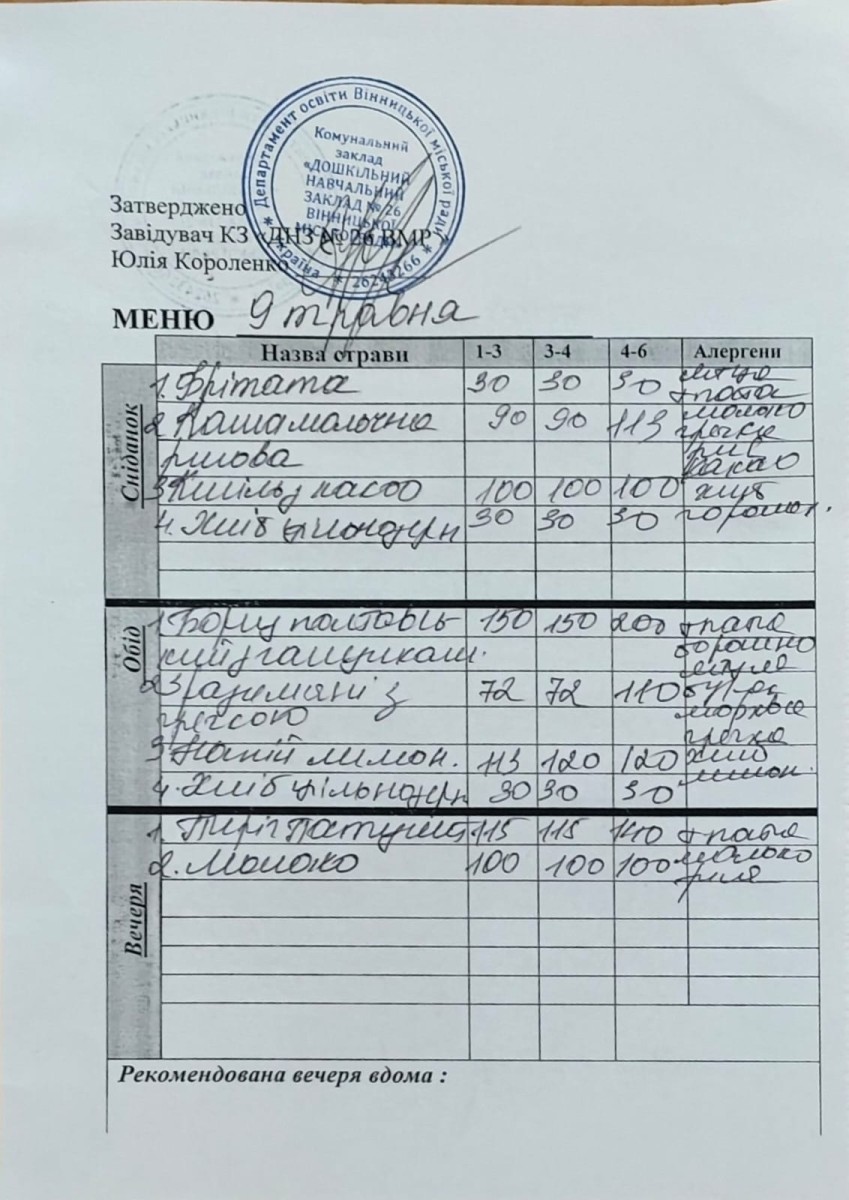 Департамент освіти Вінницької міської ради
Комунальний
заклад
«ДОШКІЛЬНИЙ
НАВЧАЛЬНИЙ
ЗАКЛАД № 26
ВІННИЦЬКОЇ
Україна * 26244266 *
Затверджено
Завідувач КЗ «ДНЗ № 26 ВМР
Юлія Короленко
МЕНЮ 9 травня
Назва страви 1-3 3-4 4-6 Алергени
Сніданок
1. Фрітата 30 30 30 яйце
2. Каша молочна 90 90 113 молоко
рисова рис какао
3. Кисіль з какао 100 100 100 хліб
4. Хліб цільнозерн 30 30 30
Обід
1. Борщ полтавсь- 150 150 200
кий з галушками. борошно
2. Зрази мʼясні з 72 72 110
гречкою морква гречка
3. Напій лимон. 113 120 120 хліб
4. Хліб цільнозерн 30 30 30 лимон.
Вечеря
1. Пиріг 115 115 140
2. Молоко 100 100 100 молоко
Рекомендована вечеря вдома :